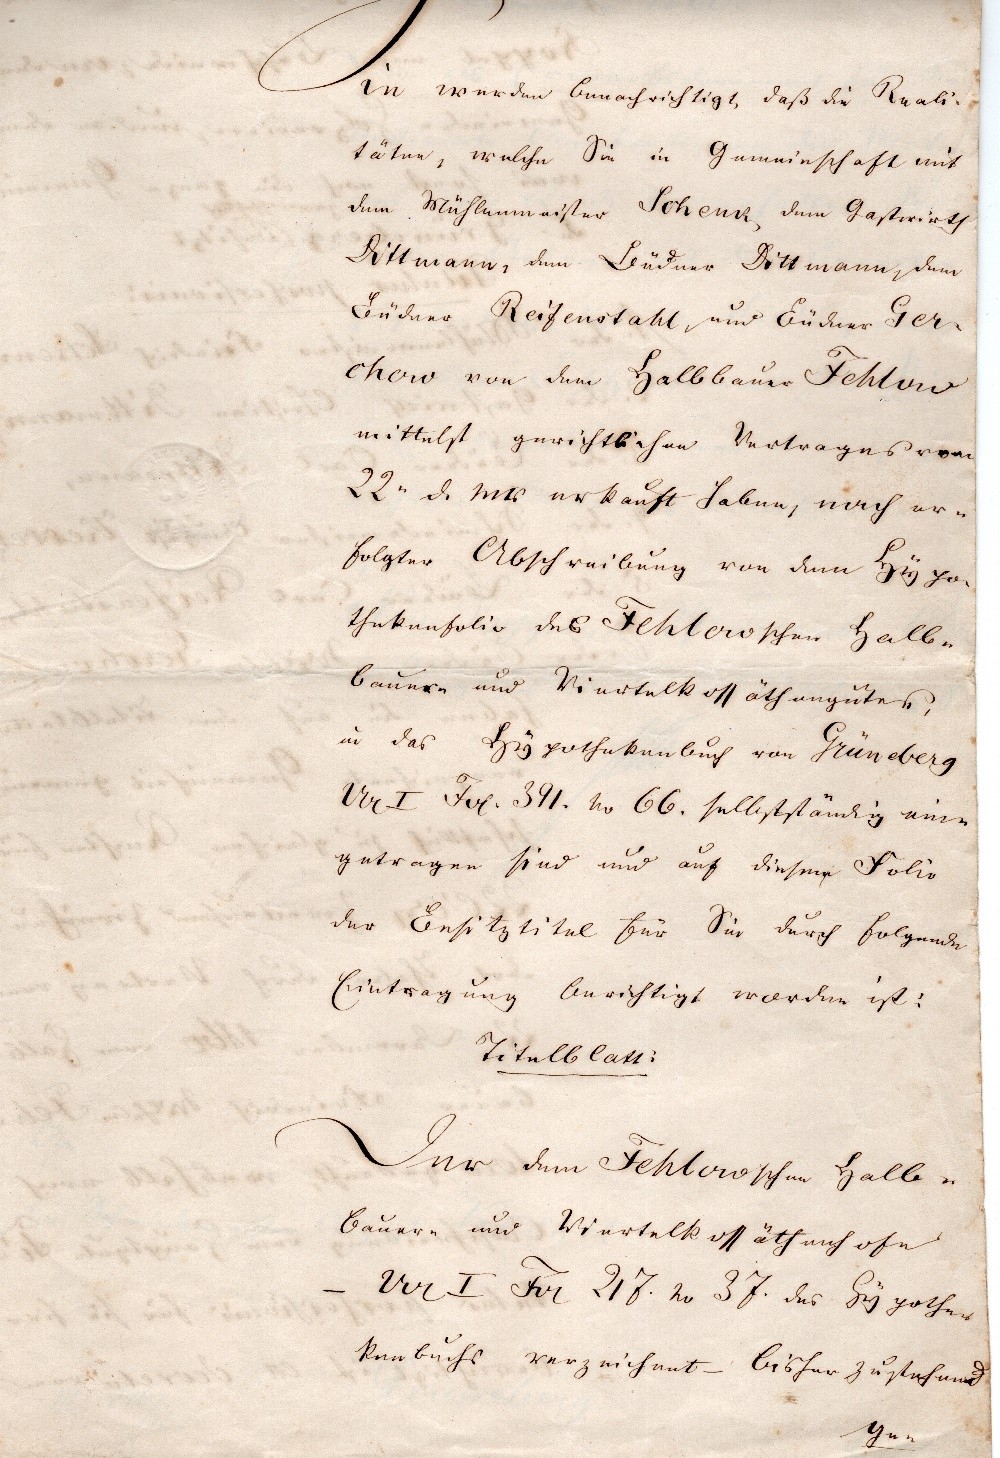 Sie werden benachrichtigt, daß die Reali-
täten, welche Sie in Gemeinschaft mit
dem Mühlenmeister Schenk, dem Gastwirth
Dittmann, dem Büdner Dittmann, dem
Büdner Reifenstahl, und Büdner Ger-
chow von dem Halbbauer Fehlow
mittelst gerichtlichen Vertrages vom
22n d. Mts erkauft haben, nach er-
folgter Abschreibung von dem Hÿpo-
thekenfolio des Fehlowschen Halb-
bauer- und Viertelkossäthengutes,
in das Hÿpothekenbuch von Grüneberg
Vol I Fol. 391. No 66. selbstständig ein-
getragen sind und auf diesem Folio
der Besitztitel für Sie durch folgende
Eintragung berichtigt worden ist:
Titelblatt:
Der dem Fehlowschen Halb-
bauer- und Viertelkossäthenhofe
– Vol I Fol 217. No 37. des Hÿpothe-
kenbuchs verzeichnet – bisher zustehend
gen